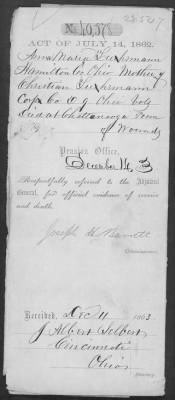 23.527
No 10,578
ACT OF JULY 14, 1862.
Anna Maria Luhrmann
Hamilton Co Ohio Mother of
Christian Luhrmann
Corp Co D 9 Ohio Vols
Died at Chattanooga Tenn
of Wounds
Pension Office,
December 14, 3
Respectfully referred to the Adjutant
General, for official evidence of service
and death.
Joseph H Barrett
Commissioner.
Received, Dec 11 1863.
J. Albert Seibert
Cincinnati
Ohio
Attorney.